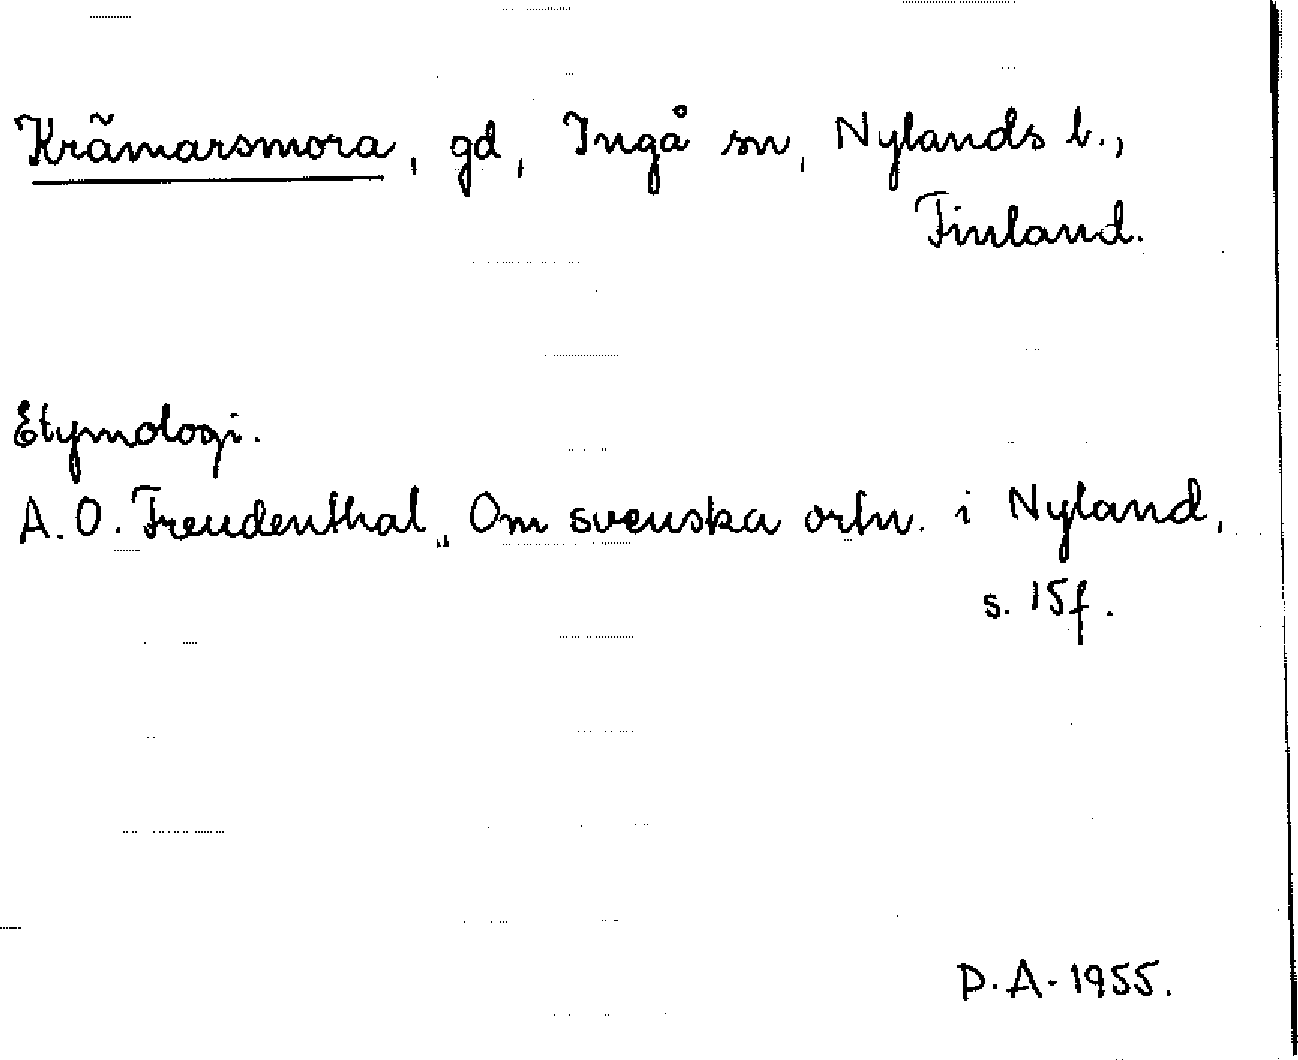 Krämarsmora, gd, Ingå sn, Nylands l.,
Finland.
Etymologi.
A.O. Freudenthal, Om svenska ortn. i Nyland,
s. 15f.
P.A. 1955.